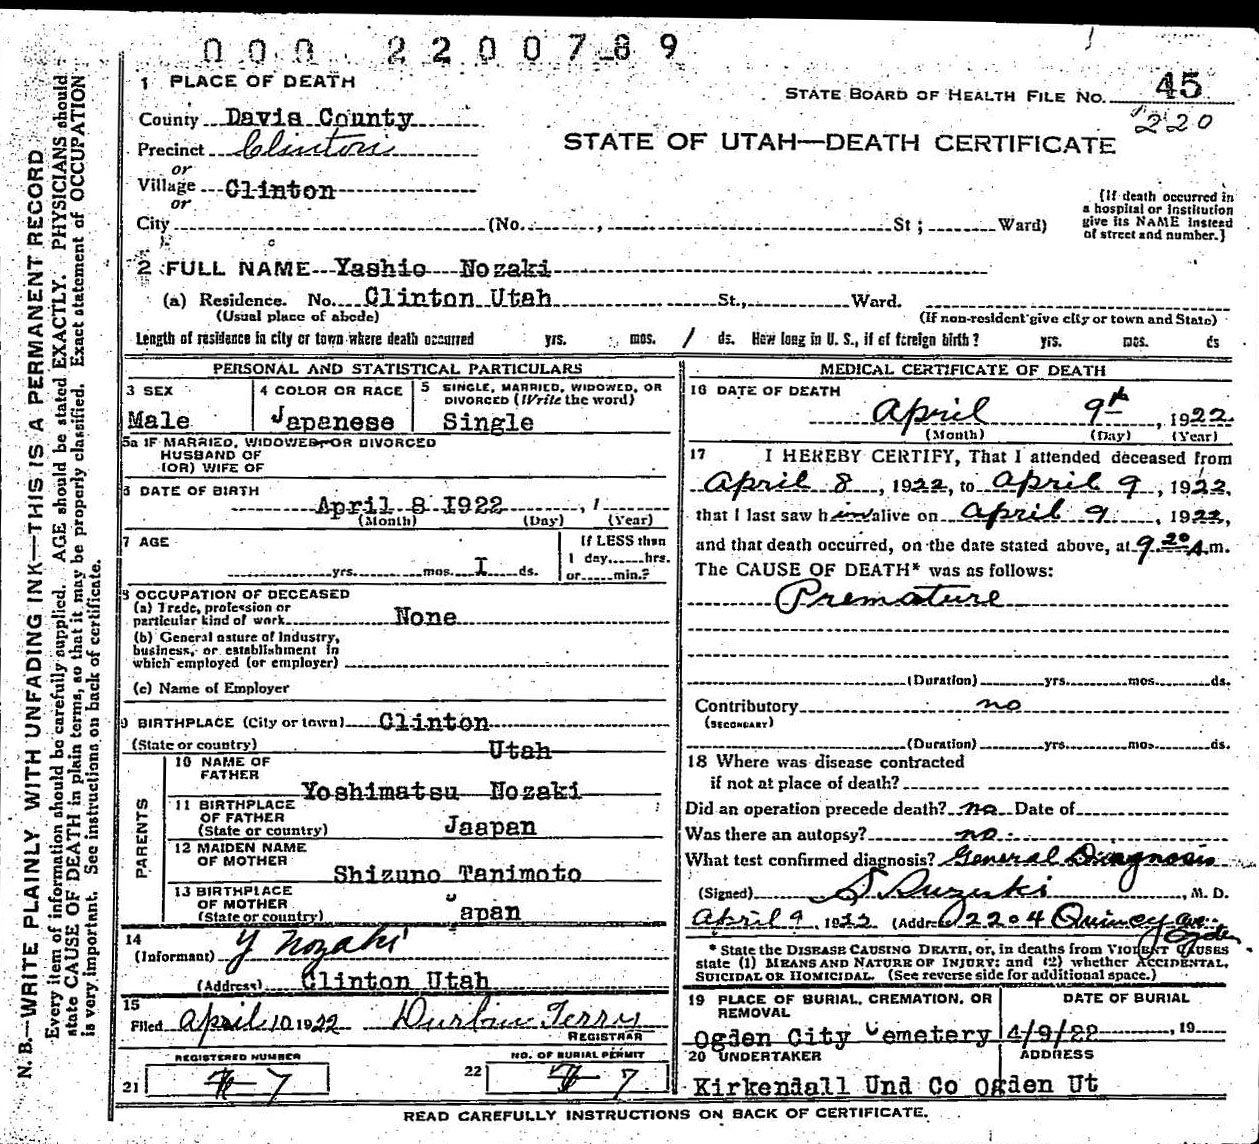 000 2200789
1 PLACE OF DEATH
STATE BOARD OF HEALTH FILE NO. 45
220
County Davis County
STATE OF UTAH—DEATH CERTIFICATE
Precinct Clinton
or
Village Clinton
or
City (No. , St ; Ward)
{If death occurred in
a hospital or institution
give its NAME instead
of street and number.}
2 FULL NAME Yashio Nozaki
(a) Residence. No. Clinton Utah St., Ward.
(Usual place of abode) (If non-resident give city or town and State)
Length of residence in city or town where death occurred yrs. mos. 1 ds. How long in U. S., if of foreign birth? yrs. mos. ds
PERSONAL AND STATISTICAL PARTICULARS
3 SEX
Male
4 COLOR OR RACE
Japanese
5 SINGLE, MARRIED, WIDOWED, OR
DIVORCED (Write the word)
Single
5a IF MARRIED, WIDOWED, OR DIVORCED
HUSBAND OF
(OR) WIFE OF
6 DATE OF BIRTH
April 8 I922 , 1
(Month) (Day) (Year)
7 AGE
yrs. mos. I ds.
If LESS than
1 day, hrs.
or min.?
8 OCCUPATION OF DECEASED
(a) Trade, profession or
particular kind of work None
(b) General nature of Industry,
business, or establishment in
which employed (or employer)
(c) Name of Employer
9 BIRTHPLACE (City or town) Clinton
(State or country) Utah
PARENTS
10 NAME OF
FATHER
Yoshimatsu Nozaki
11 BIRTHPLACE
OF FATHER
(State or country) Jaapan
12 MAIDEN NAME
OF MOTHER
Shizuno Tanimoto
13 BIRTHPLACE
OF MOTHER
(State or country) Japan
14
(Informant) Y Nozaki
(Address) Clinton Utah
15
Filed April 10 1922
REGISTRAR
REGISTERED NUMBER
21 7
NO. OF BURIAL PERMIT
22 7
MEDICAL CERTIFICATE OF DEATH
16 DATE OF DEATH
April 9th, 1922
(Month) (Day) (Year)
17 I HEREBY CERTIFY, That I attended deceased from
April 8, 1922, to April 9, 1922,
that I last saw him alive on April 9, 1922,
and that death occurred, on the date stated above, at 9 20 A.m.
The CAUSE OF DEATH* was as follows:
Premature
(Duration) yrs. mos. ds.
Contributory no
(SECONDARY)
(Duration) yrs. mos. ds.
18 Where was disease contracted
if not at place of death?
Did an operation precede death? no Date of
Was there an autopsy? no.
What test confirmed diagnosis? General Diagnosis
(Signed) S Suzuki, M. D.
April 9, 1922 (Address) 2204 Quincy ave.
Ogden
* State the DISEASE CAUSING DEATH, or, in deaths from VIOLENT CAUSES
state (1) MEANS AND NATURE OF INJURY; and (2) whether ACCIDENTAL,
SUICIDAL OR HOMICIDAL. (See reverse side for additional space.)
19 PLACE OF BURIAL, CREMATION, OR
REMOVAL
Ogden City Cemetery
DATE OF BURIAL
4/9/22 , 19
20 UNDERTAKER
ADDRESS
Kirkendall Und Co Ogden Ut
READ CAREFULLY INSTRUCTIONS ON BACK OF CERTIFICATE.
N. B.—WRITE PLAINLY WITH UNFADING INK—THIS IS A PERMANENT RECORD
Every item of information should be carefully supplied. AGE should be stated EXACTLY. PHYSICIANS should
state CAUSE OF DEATH in plain terms, so that it may be properly classified. Exact statement of OCCUPATION
is very important. See instructions on back of certificate.